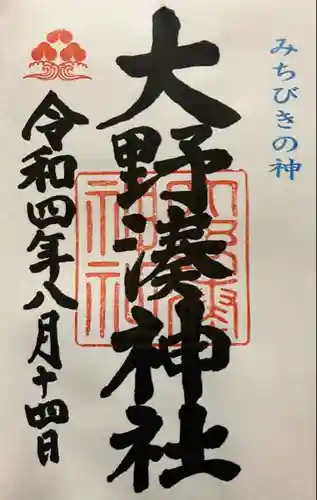 みちびきの神
大野湊神社
令和四年八月十四日